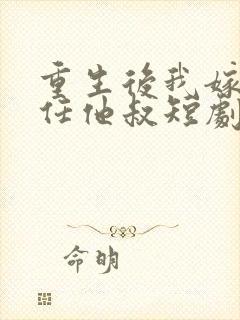 重生後我嫁
任他叔短劇
命明